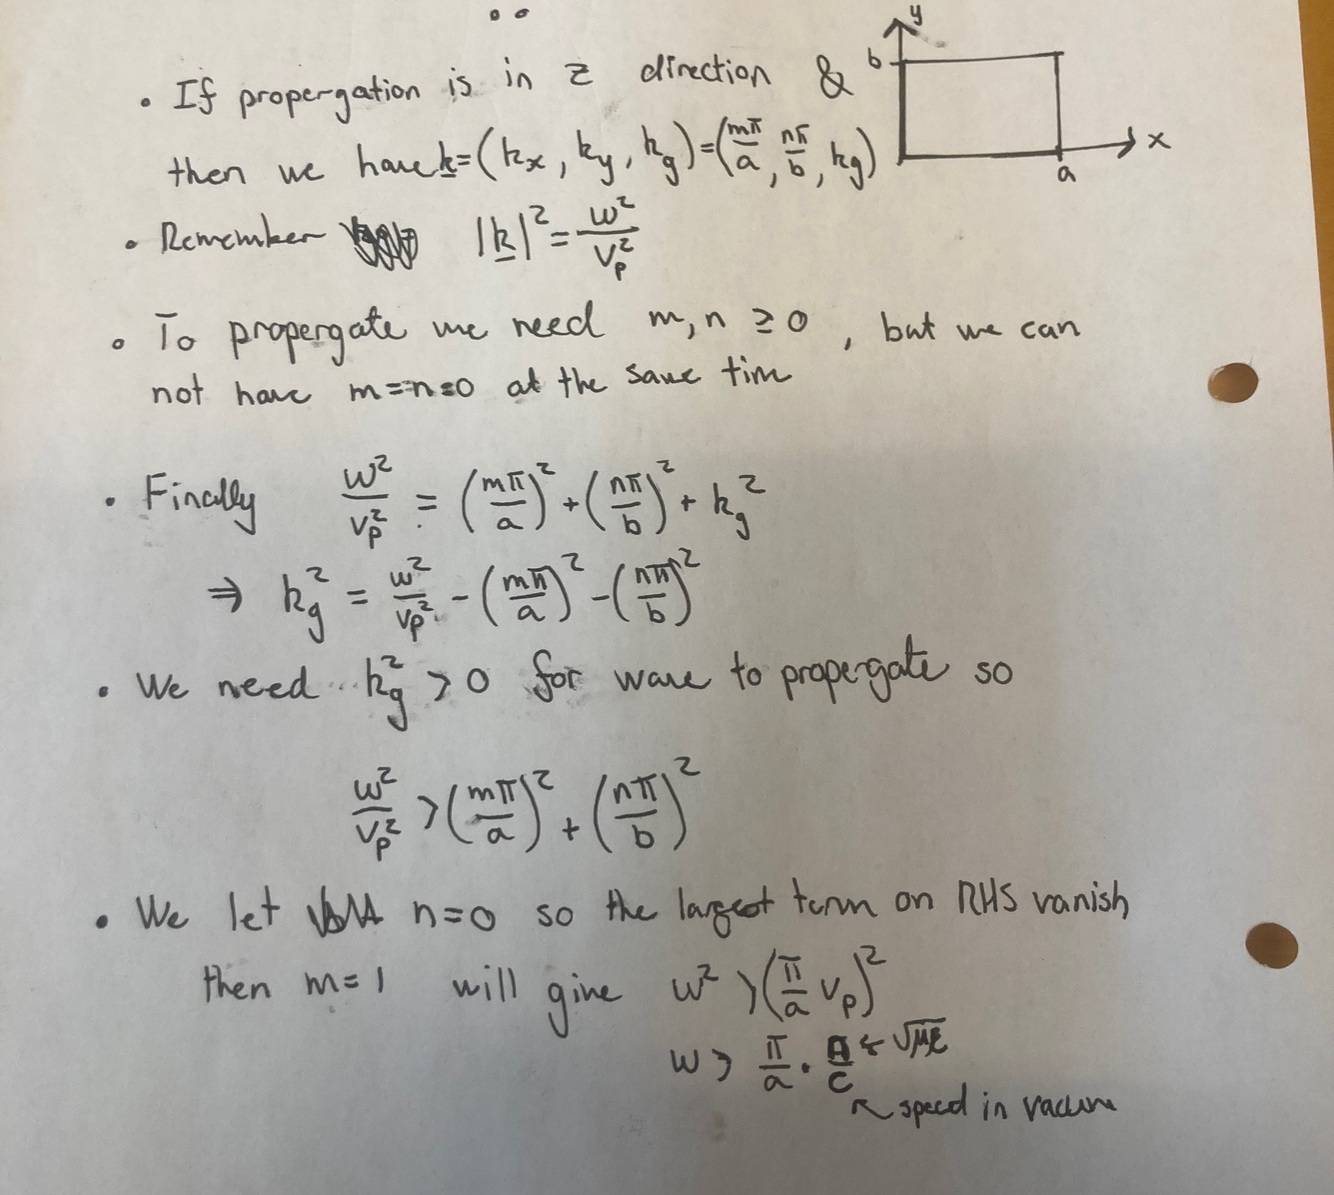 • If propergation is in z direction &
y
b
a
x
then we have k=(kx, ky, kg)=(mπ/a, nπ/b, kg)
• Remember |k|² = w²/Vp²
• To propergate we need m,n ≥0, but we can
not have m=n=0 at the same tim
• Finally w²/vp² = (mπ/a)² + (nπ/b)² + kg²
⇒ kg² = w²/vp² - (mπ/a)² - (nπ/b)²
• We need kg² > 0 for wave to propergate so
w²/Vp² > (mπ/a)² + (nπ/b)²
• We let n=0 so the largest term on RHS vanish
then m=1 will give w² > (π/a vp)²
w > π/a · /c ← √με
↖ speed in vacum